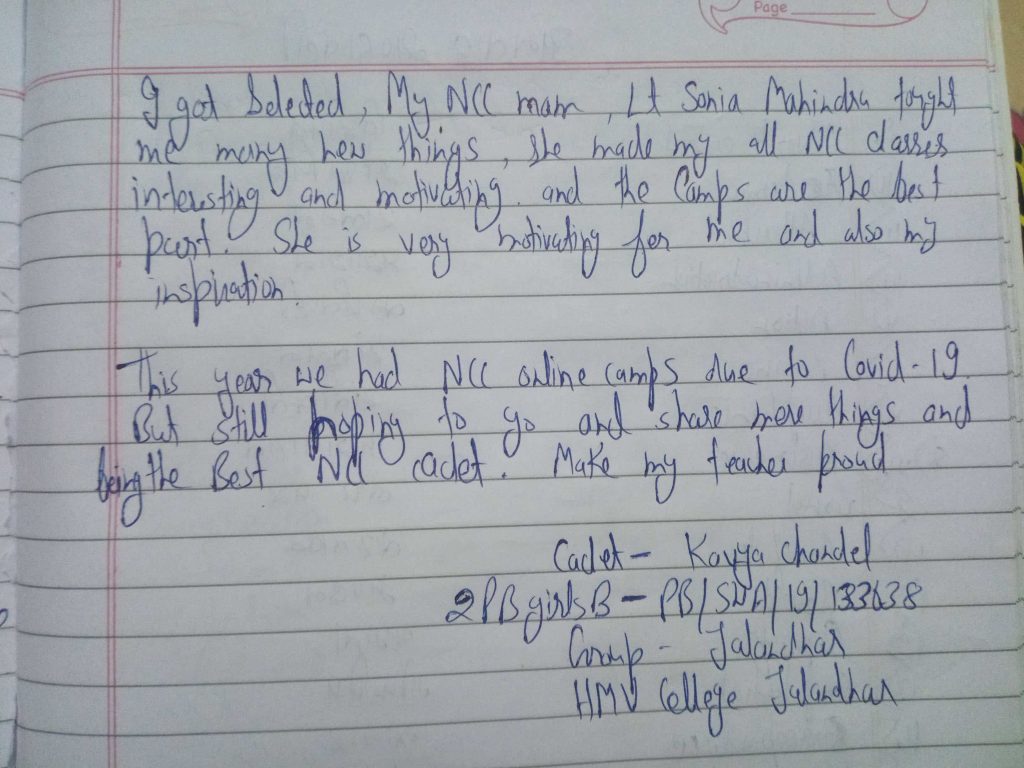 Page
I got Selected, My NCC mam, Lt Sonia Mahindru taught
me many new things, she made my all NCC classes
interesting and motivating. and the Camps are the best
part. She is very motivating for me and also my
inspiration.
This year we had NCC online camps due to Covid-19.
But still hoping to go and share more things and
being the Best NCC cadet. Make my teacher proud
Cadet- Kavya Chandel
2PB girls B - PB/SWA/19/133638
Group - Jalandhar
HMV College Jalandhar